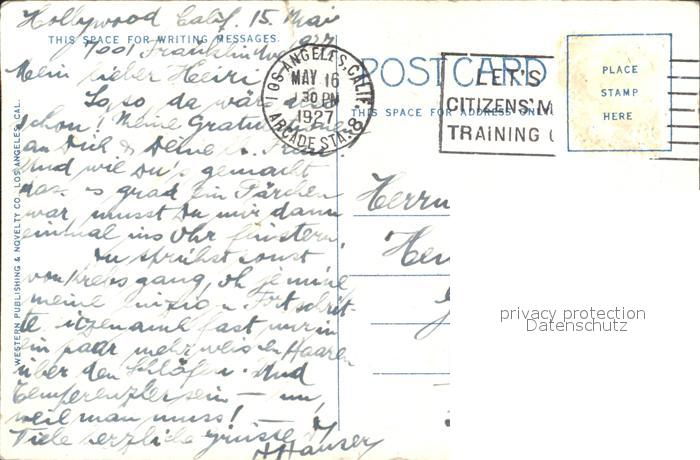 Hollywood Calif. 15. Mai
THIS SPACE FOR WRITING MESSAGES.
7001 Franklin Ave 927
Mein lieber Heiri!
So, so da wäre
schon! Meine Gratu
an Dich & Deine
Und wie Du's gemacht
dass es grad ein Pärchen
war, musst Du mir dann
einmal ins Ohr flüstern.
Du sprühst sonst
von Krebsgang, oh jemine
meine
fast nur in
ein paar mehr weissen Haaren
über den Schläfen. Und
Temperenzler sein — nu,
weil man muss! —
Viele herzliche Grüsse
Hauser
WESTERN PUBLISHING & NOVELTY CO., LOS ANGELES, CAL.
LOS ANGELES, CALIF.
MAY 16
1 30 PM
1927
ARCADE STA. 8
POST CARD
THIS SPACE FOR ADDRESS ONLY
LET'S
CITIZENS' M
TRAINING C
PLACE
STAMP
HERE
Herrn
privacy protection
Datenschutz